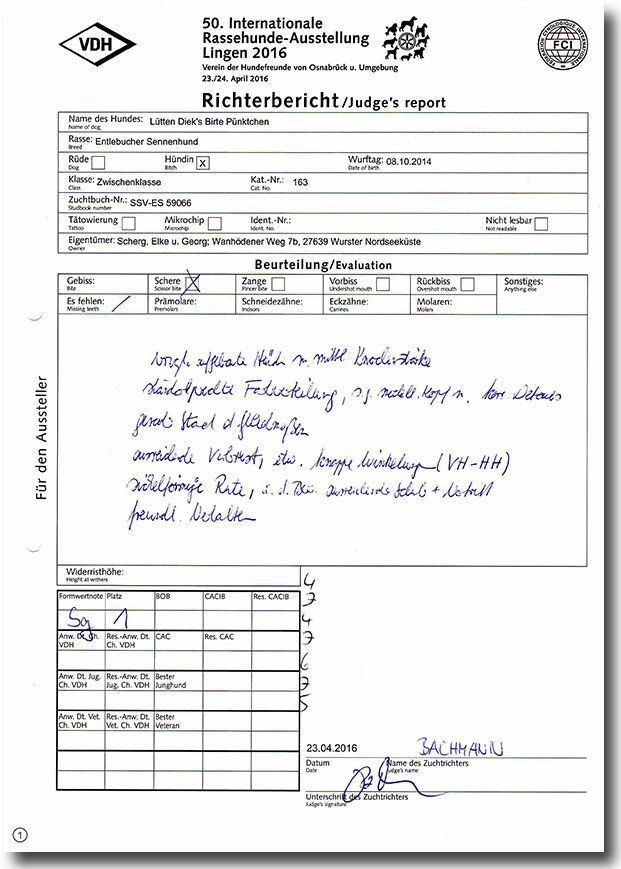 VDH
50. Internationale
Rassehunde-Ausstellung
Lingen 2016
Verein der Hundefreunde von Osnabrück u. Umgebung
23./24. April 2016
FEDERATION CYNOLOGIQUE INTERNATIONALE
FCI
Richterbericht/Judge's report
Name des Hundes: Lütten Diek's Birte Pünktchen
Name of dog
Rasse: Entlebucher Sennenhund
Breed
Rüde Hündin X Wurftag: 08.10.2014
Dog Bitch Date of birth
Klasse: Zwischenklasse Kat.-Nr.: 163
Class Cat. No.
Zuchtbuch-Nr.: SSV-ES 59066
Studbook number
Tätowierung Mikrochip Ident.-Nr.: Nicht lesbar
Tattoo Microchip Ident. No. Not readable
Eigentümer: Scherg, Elke u. Georg; Wanhödener Weg 7b, 27639 Wurster Nordseeküste
Owner
Beurteilung/Evaluation
Gebiss: Schere X Zange Vorbiss Rückbiss Sonstiges:
Bite Scissor bite Pincer bite Undershot mouth Overshot mouth Anything else
Es fehlen: / Prämolare: Schneidezähne: Eckzähne: Molaren:
Missing teeth Premolars Incisors Canines Molars
aufgebaute m. mittl. Knochenstärke
Farbverteilung, s.g. Kopf m.
ausreichende Vorbrust, etw. knappe Winkelung (VH-HH)
Rute, ausreichende Schub +
freundl. Verhalten
Für den Aussteller
Widerristhöhe:
Height at withers
Formwertnote Platz BOB CACIB Res. CACIB
Sg 1
Anw. Dt. Ch. VDH Res.-Anw. Dt. Ch. VDH CAC Res. CAC
Anw. Dt. Jug. Ch. VDH Res.-Anw. Dt. Jug. Ch. VDH Bester Junghund
Anw. Dt. Vet. Ch. VDH Res.-Anw. Dt. Vet. Ch. VDH Bester Veteran
4
7
4
7
6
7
5
23.04.2016 BACHMANN
Datum Name des Zuchtrichters
Date Judge's name
Unterschrift des Zuchtrichters
Judge's signature
1